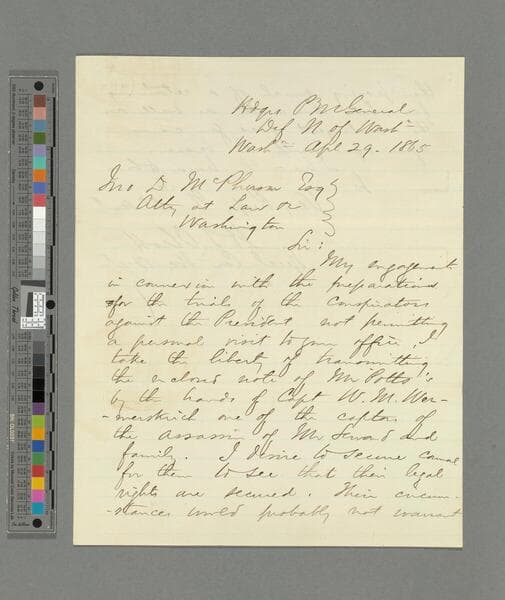 Hdqrs P M General
Def N. of Wash<sup>n</sup>
Wash<sup>n</sup> Apl 29. 1865
Jno D. McPherson Esq
Atty at Law &c
Washington
Sir:
My engagement
in connexion with the preparations
for the trials of the conspirators
against the President not permitting
a personal visit to your office, I
take the liberty of transmitting
the inclosed note of Mr Potts's
by the hands of Capt W. M. Wer-
-merskirch one of the captors of
the assassin of Mr Seward and
family. I desire to secure counsel
for them to see that their legal
rights are secured. Their circum-
-stances would probably not warrant